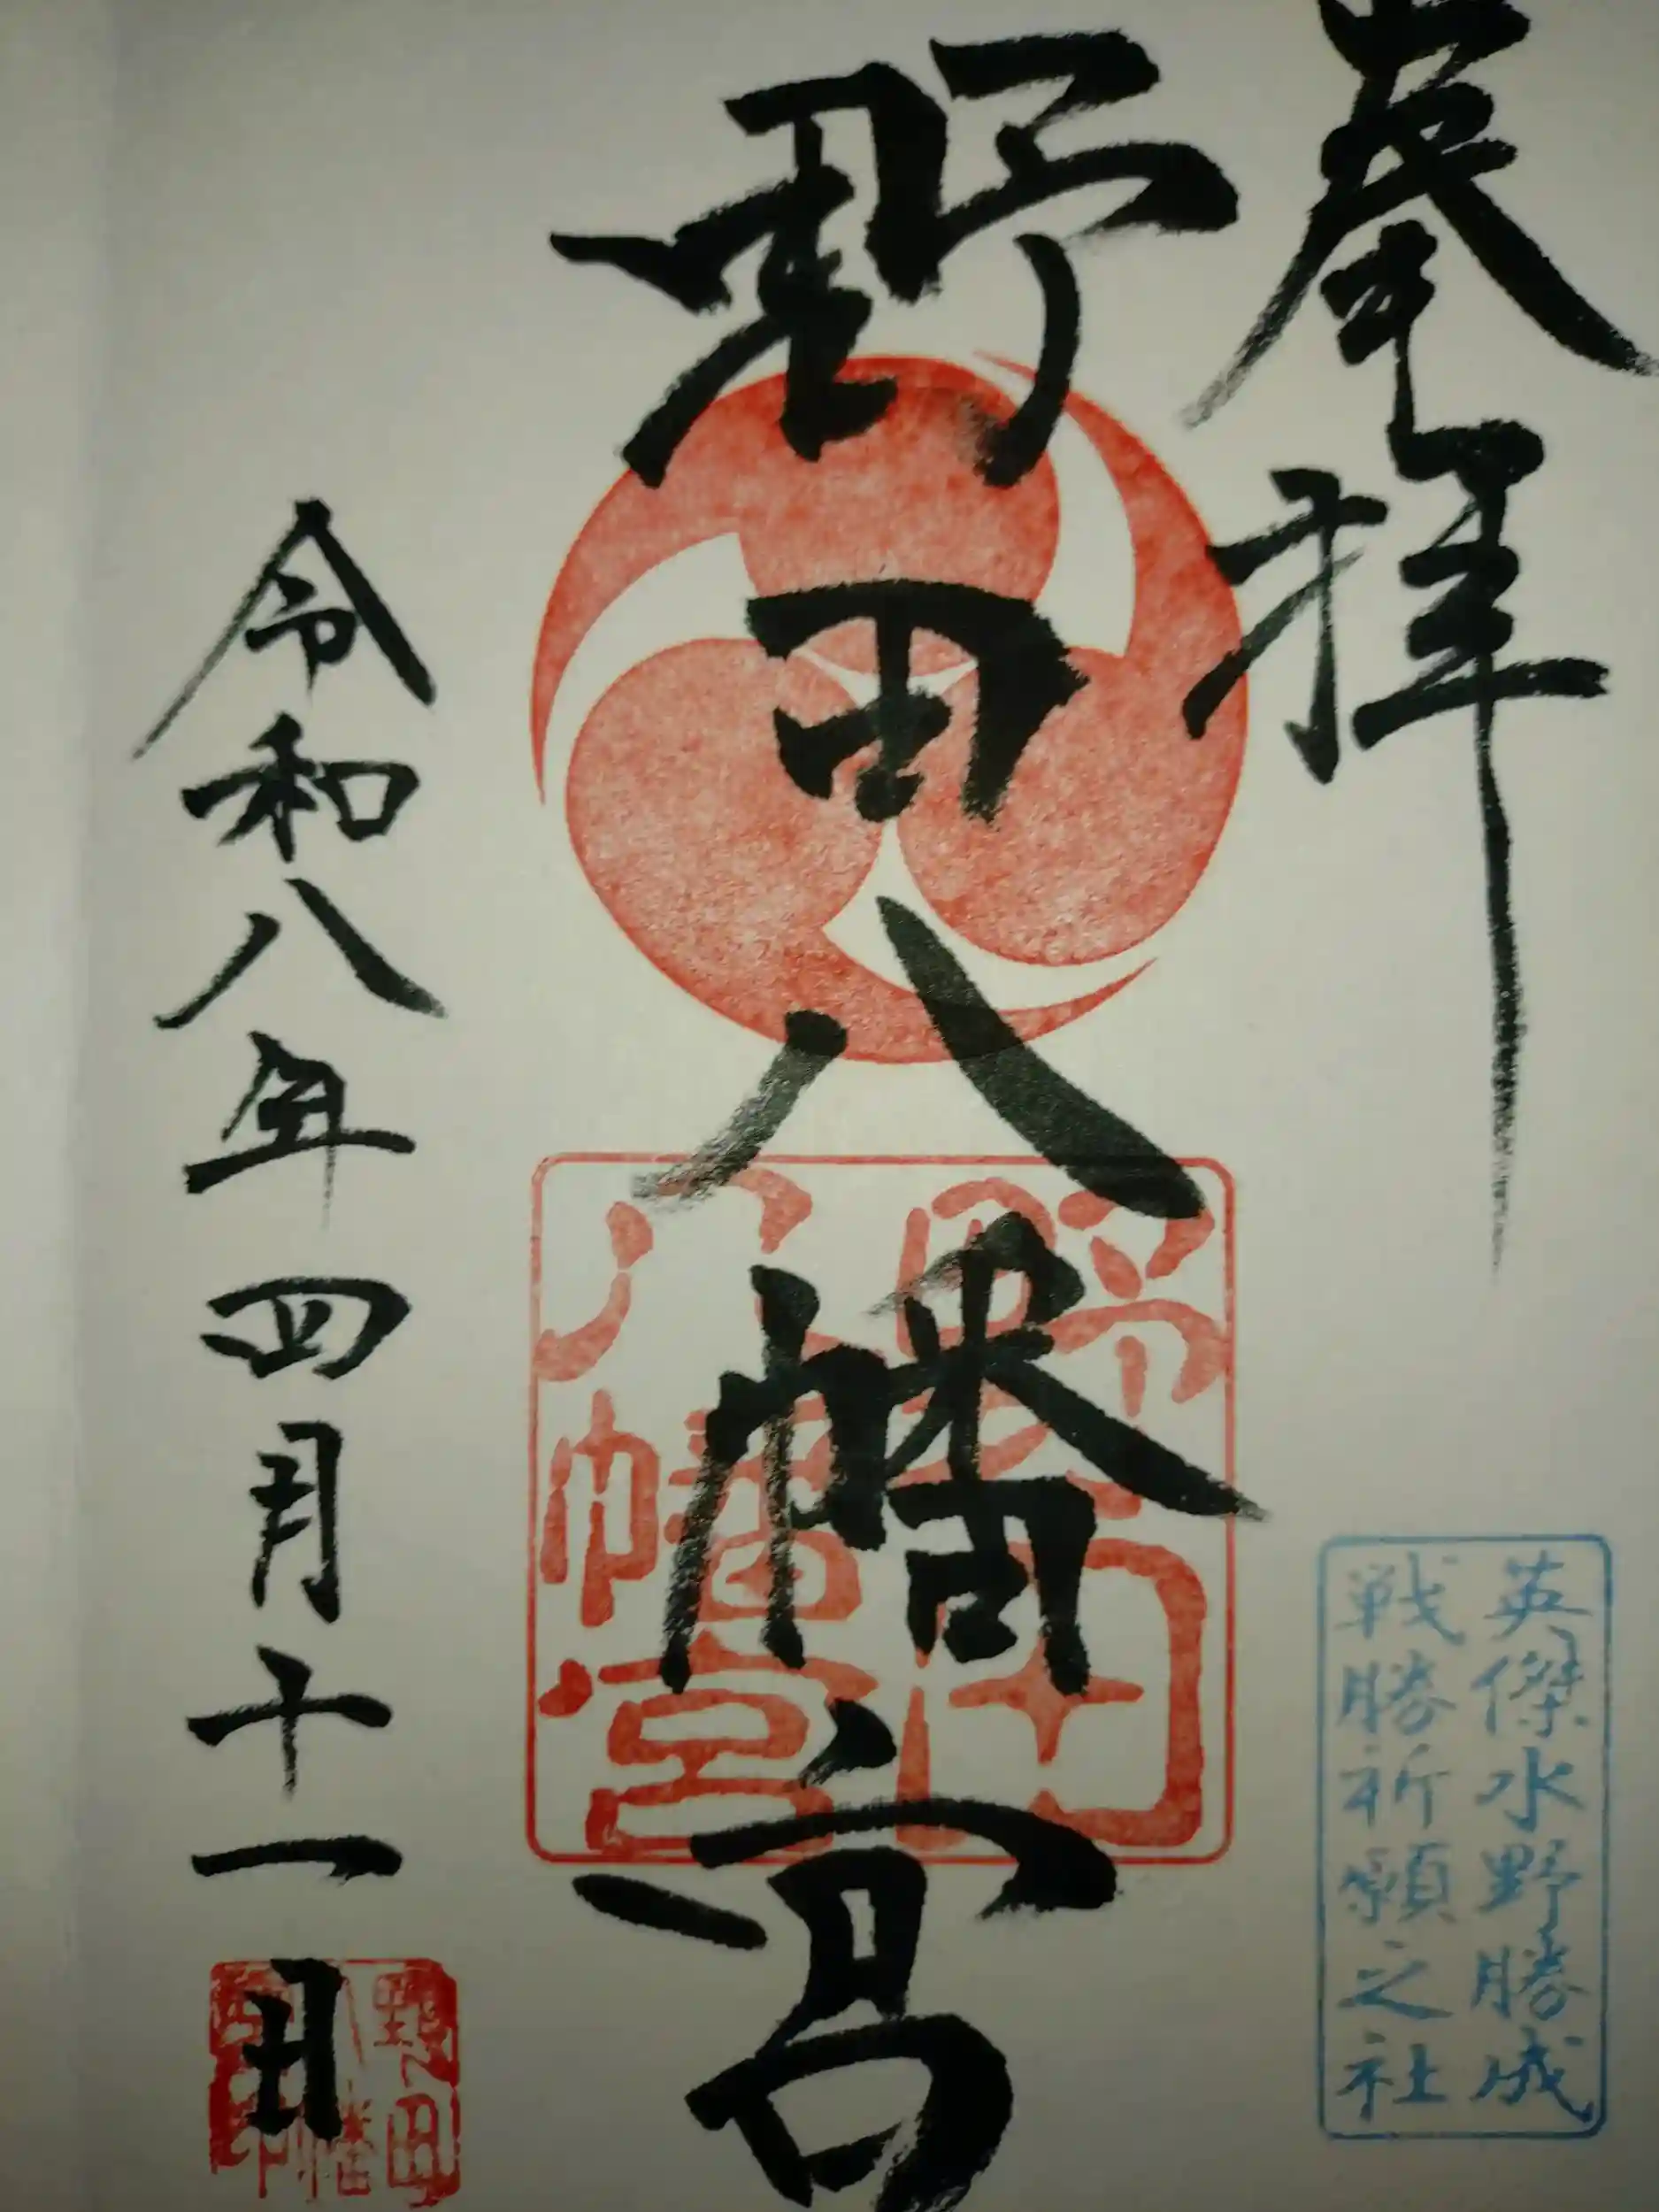 奉拝
英傑水野勝成
戦勝祈願之社
野田八幡宮
野田
八幡宮
令和八年四月十一日
野田
八幡